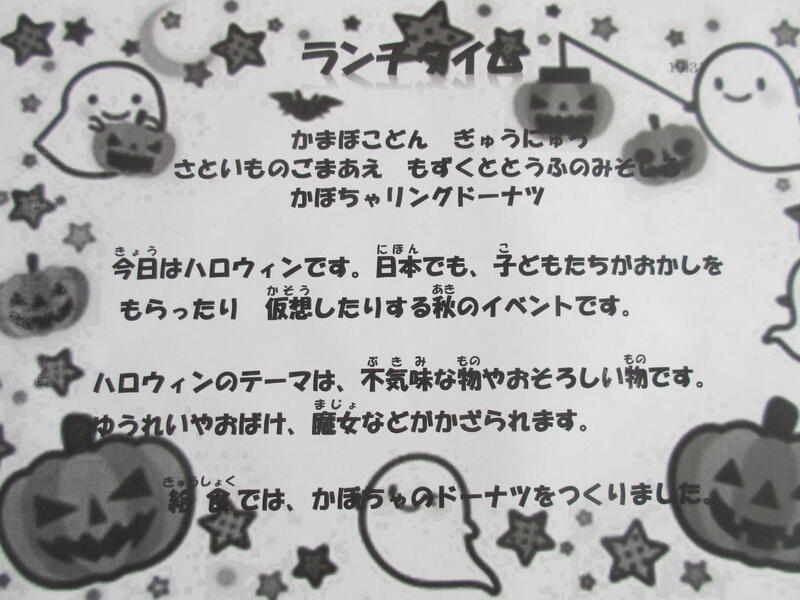 ランチタイム
10.31
かまぼこどん　ぎゅうにゅう
さといものごまあえ　もずくととうふのみそしる
かぼちゃリングドーナツ
今日はハロウィンです。日本でも、子どもたちがおかしを
もらったり　仮想したりする秋のイベントです。
ハロウィンのテーマは、不気味な物やおそろしい物です。
ゆうれいやおばけ、魔女などがかざられます。
給食では、かぼちゃのドーナツをつくりました。